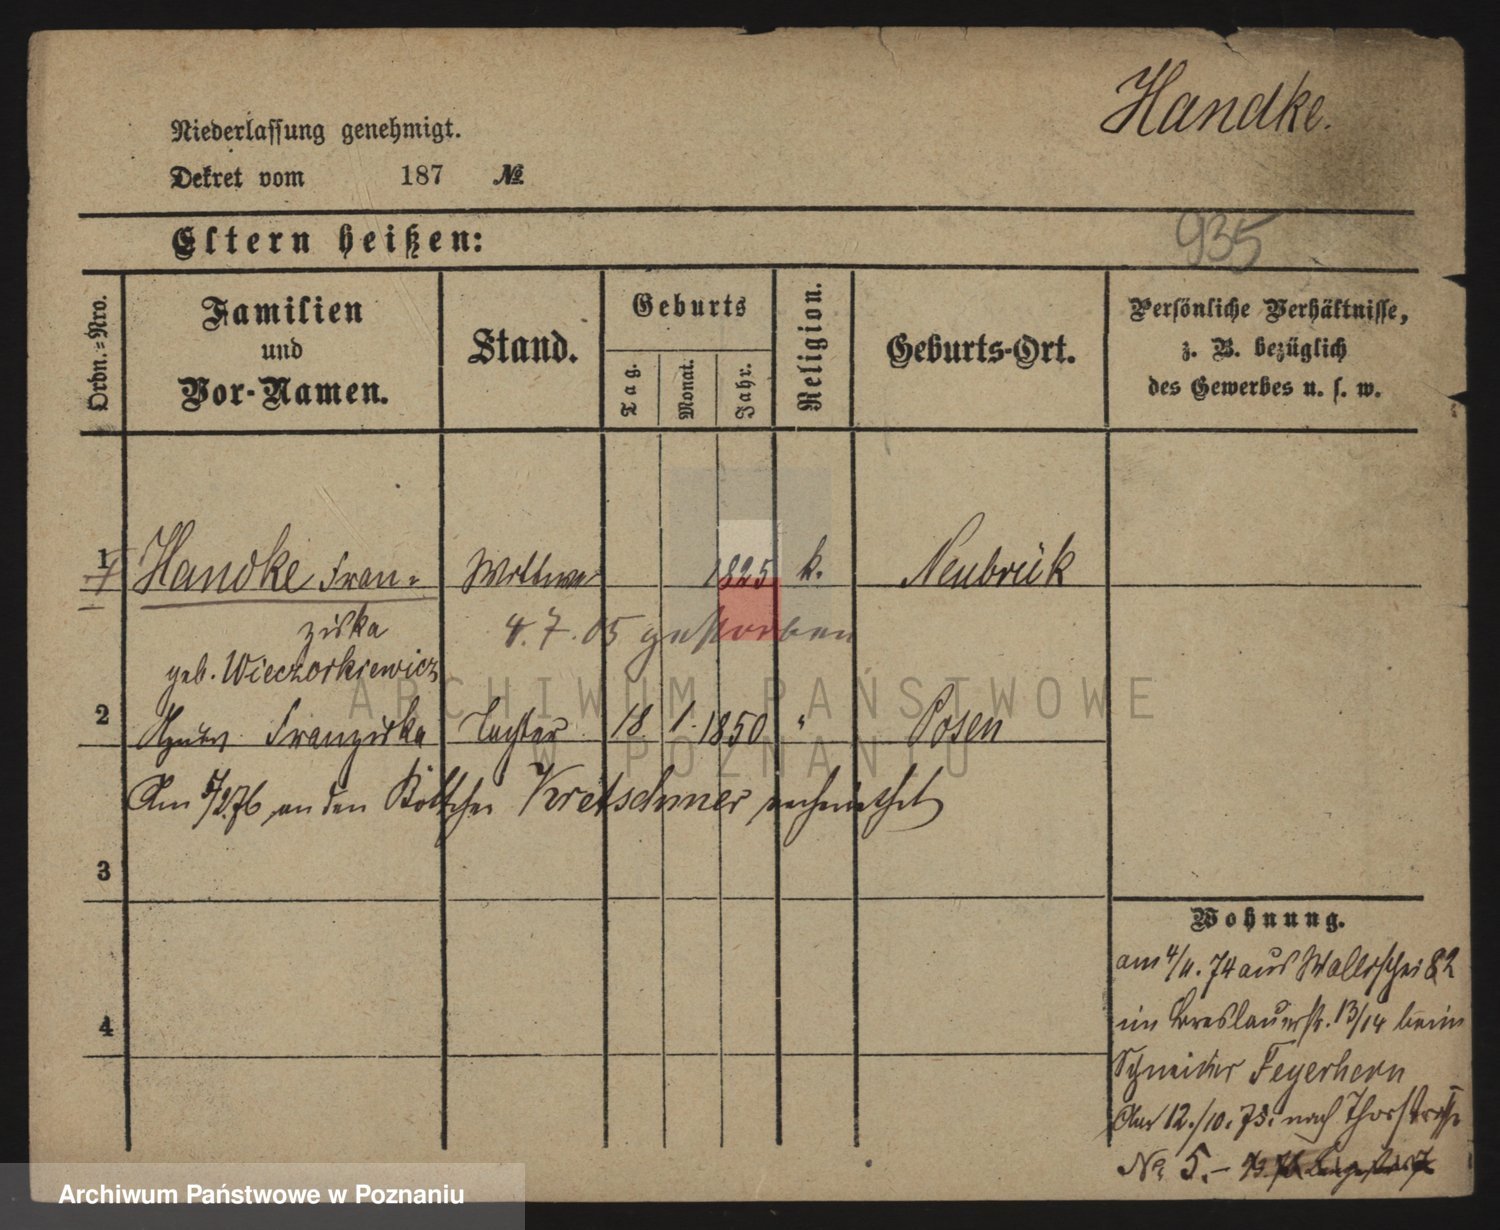 Handke.
Niederlassung genehmigt.
Dekret vom 187 №
Eltern heißen:
935
Ordn.=Nro.
Familien
und
Vor-Namen.
Stand.
Geburts
Tag.
Monat.
Jahr.
Religion.
Geburts-Ort.
Persönliche Verhältnisse,
z. B. bezüglich
des Gewerbes u. s. w.
1 Handke Fran- Wittwe 1825 k. Neubrück
ziska
4. 7. 05 gestorben
geb. Wieczorkiewicz
2 Franziska Tochter 18. 1. 1850 " Posen
Am an den Böttcher Kretschmer verheirathet
3
4
Wohnung.
am 4/11. 74 aus Wallischei 82
im Breslauerstr. 13/14 beim
Schneider Feyerhern
Am 12./10. 75. nach Thorstrasse
No 5.-
ARCHIWUM PAŃSTWOWE
W POZNANIU
Archiwum Państwowe w Poznaniu